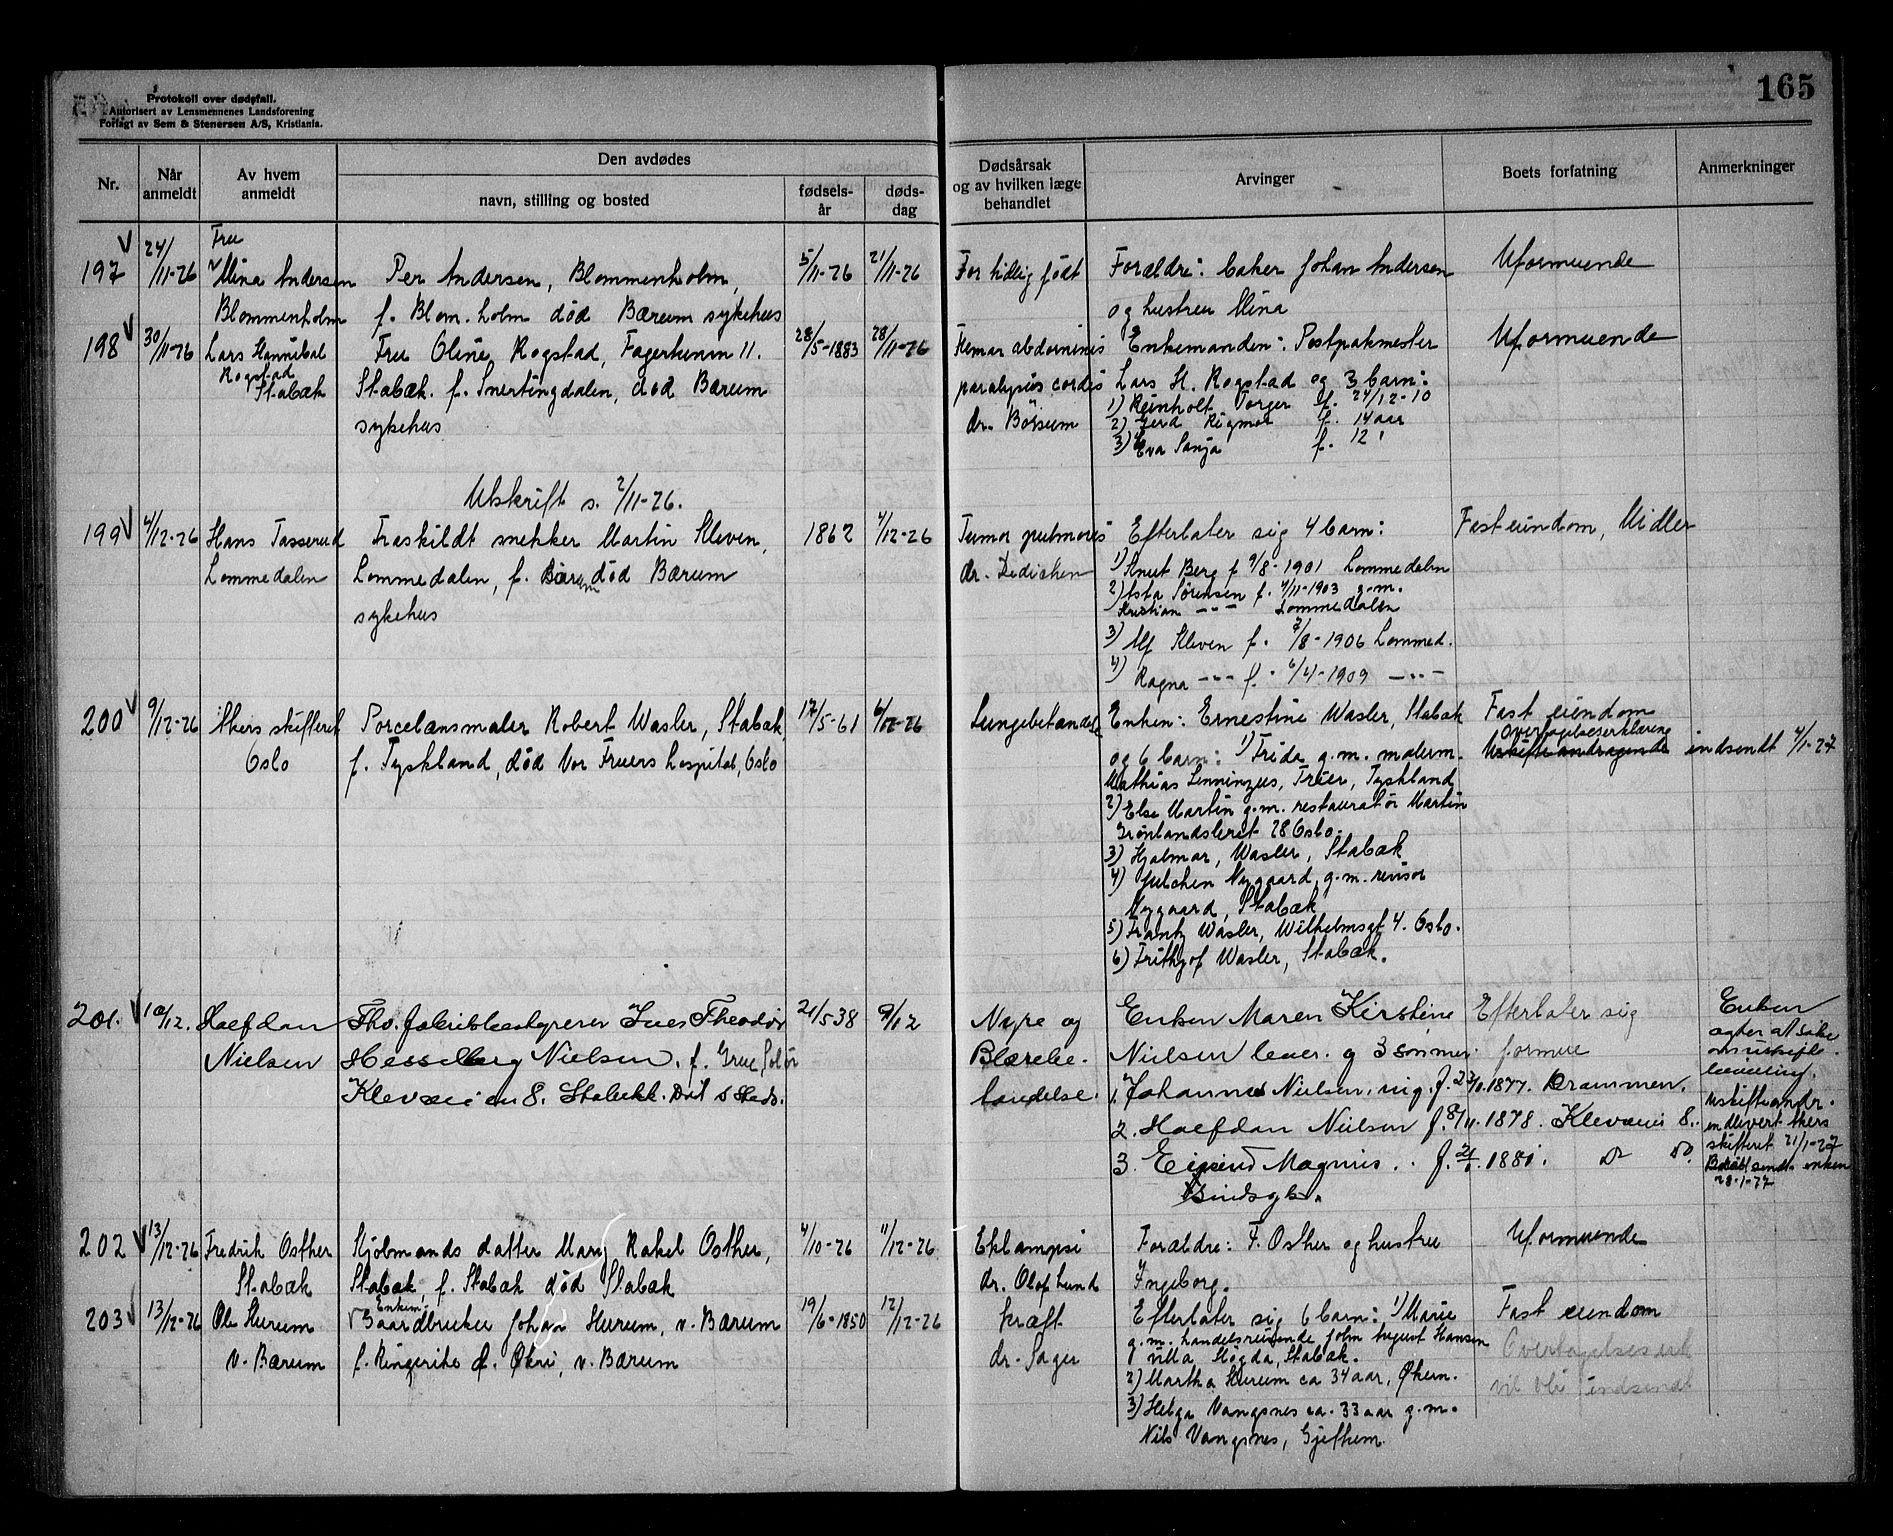 165
Protokoll over dødsfall.
Autorisert av Lensmennenes Landsforening
Forlagt av Sem & Stenersen A/S, Kristiania.
Nr.
Når anmeldt
Av hvem anmeldt
Den avdødes
navn, stilling og bosted
fødsels-år
døds-dag
Dødsårsak og av hvilken læge behandlet
Arvinger
Boets forfatning
Anmerkninger
197 24/11-26
Fru
Mina Andersen
Blommenholm
Per Andersen, Blommenholm,
f. Blom.holm død Bærum sykehus
5/11-26 21/11-26
For tidlig født
Forældre: baker Johan Andersen
og hustru Mina
Uformuende
198 30/11-26
Lars Hannibal
Rogstad
Stabæk
Fru Oline Rogstad, Fagerheimvn 11.
Stabæk. f. Snertingdalen, død Bærum
sykehus
28/5-1883 28/11-26
abdominis
paralysis cordis
dr. Börsum
Enkemanden: Postpakmester
Lars H. Rogstad og 3 barn:
1) Reinholt Torger f. 24/12-10
2) Gerd Rigmor f. 14 aar
3) Eva Sonja f. 12 '
Uformuende
Utskrift s. 2/11-26.
199 4/12-26
Hans Tasserud
Lommedalen
Fraskildt snekker Martin Kleven,
Lommedalen, f. Bærum død Bærum
sykehus
1862 4/12-26
Tumor pulmonis
dr. Dedichen
Efterlater sig 4 barn:
1) Knut Berg f 9/8-1901 Lommedalen
2) Asta Sørensen f. 4/11-1903 g.m.
Kristian -"- Lommedalen
3) Alf Kleven f. 7/8-1906 Lommed.
4) Ragna -"- f. 6/4-1909 -"-
Fast eiendom, Midler
200 9/12-26
Akers skifteret
Oslo
Porcelænsmaler Robert Wasler, Stabæk
f. Tyskland, død Vor Frues hospital, Oslo
17/5-61 6/12-26
Lungebetændelse
Enken: Ernestine Wasler, Stabæk
og 6 barn: 1) Frida g.m. malerm.
Mathias Lenninzus, Trier, Tyskland
2) Else Martin g.m. restauratør Martin
Grønlandsleret 28 Oslo.
3) Hjalmar, Wasler, Stabæk
4) Julchen Nygaard, g.m. revisor
Nygaard, Stabæk
5) Frantz Wasler, Wilhelmsgt 4. Oslo.
6) Frithjof Wasler, Stabæk.
Fast eiendom
Overtagelseserklæring
Uskifteandragende indsendt 4/1-27
201. 10/12.
Halfdan
Nielsen
Fhv. fabrikbestyrer Ines Theodor
Hesselberg Nielsen. f. Grue Solør
Kleveien 8. Stabekk. Død s Steds.
21/5 38 9/12
Nyre og
Blærebe-
tændelse.
Enken Maren Kirstine
Nielsen lever. og 3 sønner.
1. Johannes Nielsen, ing. f. 1877. Drammen.
2. Halfdan Nielsen f. 8/11. 1878. Kleveien 8.
3. Eivind Magnus. f. 1881. do do.
Sindsyk.
Efterlater sig
formue
Enken
agter at søke
om uskifte-
bevilling.
Uskifteandr.
indlevert Akers
skifteret 21/1-27
sendt enken
28-1-27
202 13/12-26
Fredrik Osther
Stabæk
Kjøbmands datter Mary Rakel Osther,
Stabæk, f. Stabæk død Stabæk
4/10-26 11/12-26
Eklampsi
dr. Olof Lund
Forældre: F. Osther og hustru
Ingeborg.
Uformuende
203 13/12-26
Ole Hurum
v. Bærum
Enkem.
Gaardbruker Johan Hurum, v. Bærum
f. Ringerike d. Økri, v. Bærum
19/6-1850 12/12-26
kræft
dr. Sager
Efterlater sig 6 barn: 1) Marie
g.m. handelsreisende John August Hansen
villa Skogda, Stabæk.
2) Martha Hurum ca 34 aar, Økern.
3) Helga Vangsnes ca. 33 aar g.m.
Nils Vangsnes, Gjethem
Fast eiendom
Overtagelseserk
vil bli indsendt